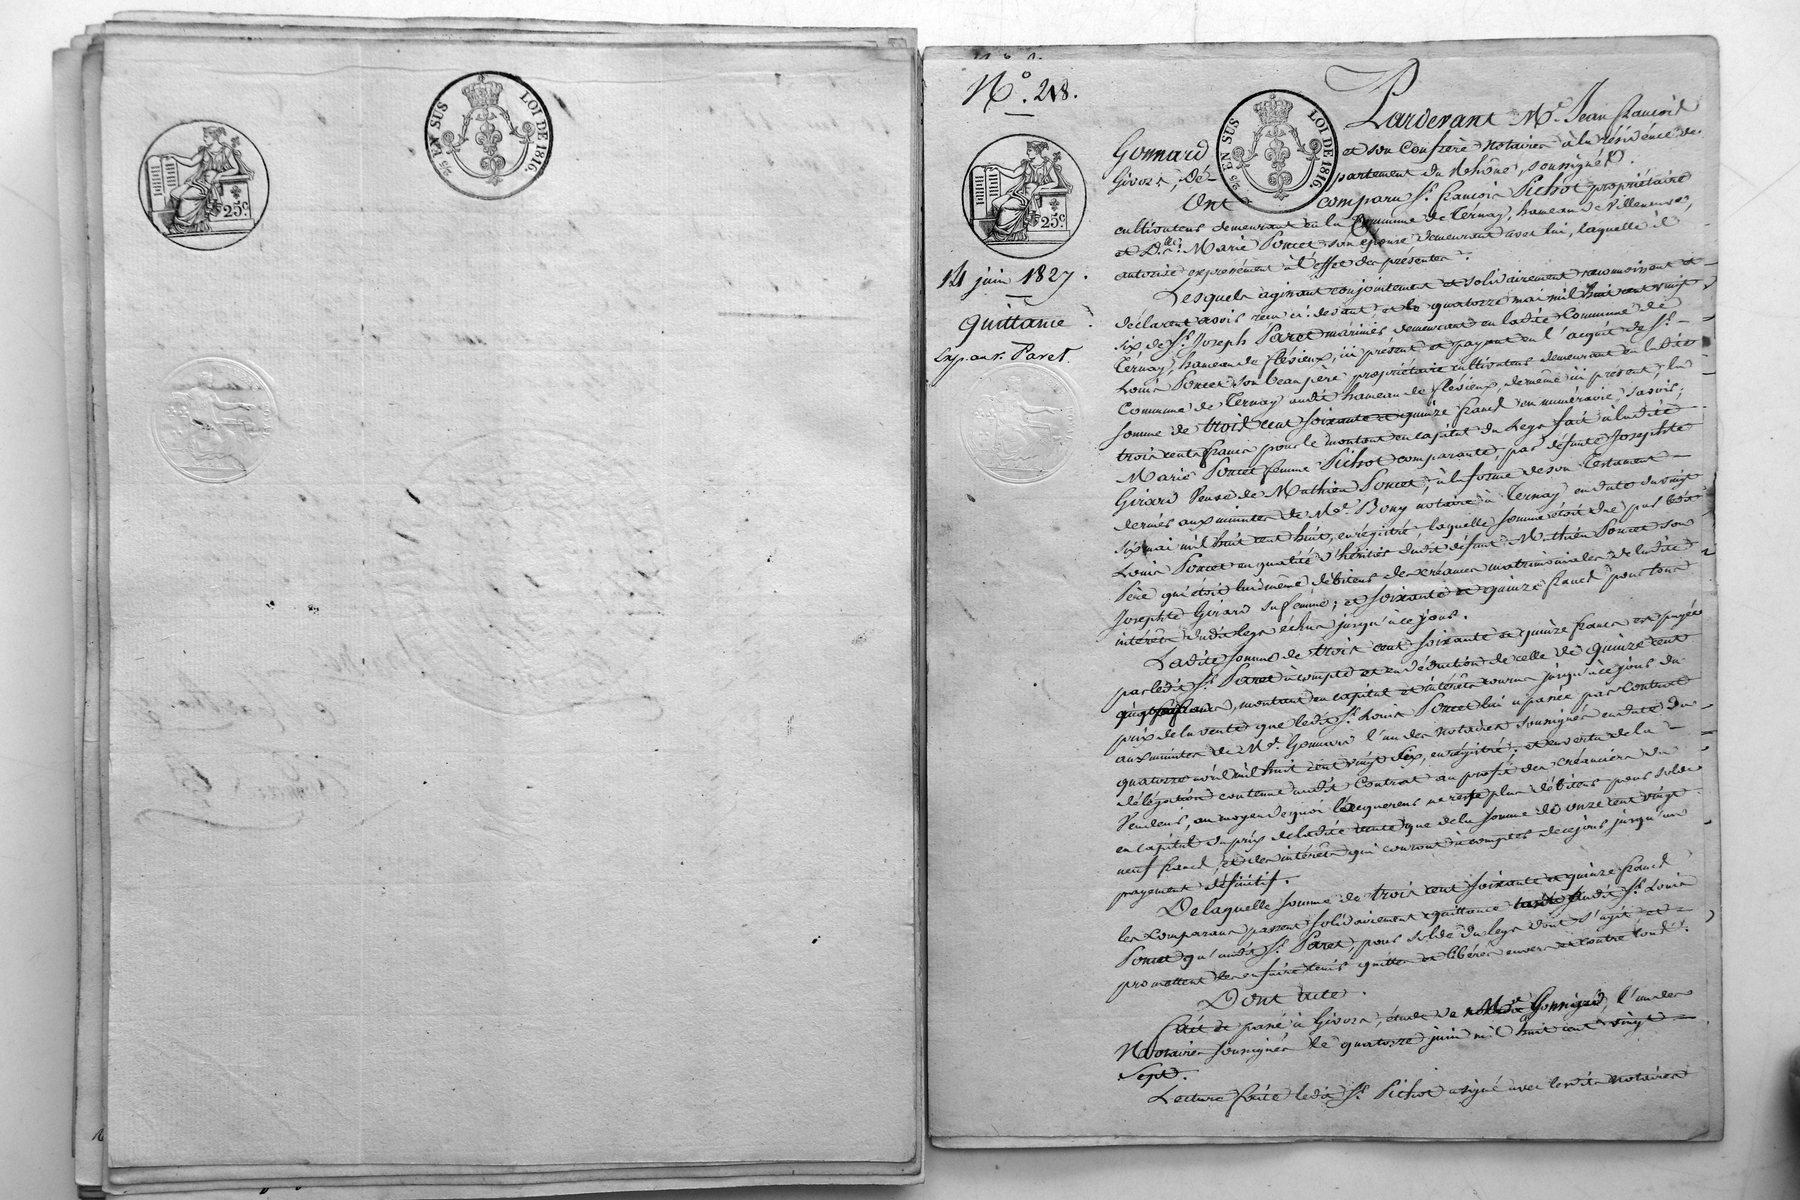 25 EN SUS LOI DE 1816.
25c.
N.o 218.
25 EN SUS LOI DE 1816.
25c.
14 juin 1827.
quittance
Exp. au s.r Paret.
Pardevant M.e Jean françois
Gonnard et son confrere notaires à la résidence de
Givors, département du Rhône, soussignés.
Ont comparu s.r françois Pichot propriétaire
cultivateur demeurant en la Commune de Ternay, hameau de Villeneuve,
et D.lle Marie Poncet son épouse demeurant avec lui, laquelle il
autorise expressément à l'effet des présentes.
Lesquels agissant conjointement et solidairement reconnoissent et
déclarent avoir reçu ci-devant et le quatorze mai mil huit cent vingt
six de s.r Joseph Paret marinier demeurant en ladite Commune de
Ternay, hameau de flévieux, ici présent et payant en l'acquit de s.r
Louis Poncet son beau père propriétaire cultivateur demeurant en ladite
Commune de Ternay audit hameau de flévieux, de même ici présent, la
somme de trois cent soixante et quinze francs en numéraire, savoir;
trois cents francs pour le montant en capital du legs fait à ladite
Marie Poncet femme Pichot comparante, par défunte Josephte
Girard Veuve de Mathieu Poncet, à la forme de son Testament
dernier aux minutes de M.e Bony notaire à Ternay en date du vingt
six mai mil huit cent huit, enrégistré, laquelle somme étoit due par ledit
Louis Poncet en qualité d'héritier dudit défunt Mathieu Poncet son
Père qui étoit lui même débiteur des créances matrimoniales de ladite
Josephte Girard sa femme; et soixante et quinze francs pour tous
intérêts dudit legs échus jusqu'à ce jour.
Ladite somme de trois cent soixante et quinze francs est payée
par ledit s.r Paret à compte et en déduction de celle de quinze cent
francs, montant en capital et intérêts courus jusqu'à ce jour du
prix de la vente que ledit s.r Louis Poncet lui a passée par Contrat
aux minutes de M.e Gonnard l'un des notaires soussignés en date du
quatorze avril mil huit cent vingt six, enrégistré; et en vertu de la
délégation contenue audit Contrat au profit des créanciers du
Vendeur, au moyen de quoi l'acquereur ne reste plus débiteur pour solde
en capital du prix de ladite vente que de la somme de onze cent vingt
neuf francs, et des intérêts qui courront à compter de ce jour jusqu'au
payement définitif.
De laquelle somme de trois cent soixante et quinze francs
les Comparans passent solidairement quittance tant audit s.r Louis
Poncet qu'audit s.r Paret, pour solde du legs dont s'agit, et
promettent les en faire tenir quittes et libérés envers et contre tous.
Dont acte.
fait et passé à Givors, étude de M.e Gonnard, l'un des
Notaires soussignés le quatorze juin mil huit cent vingt
Sept.
Lecture faite ledit s.r Pichot a signé avec lesdits notaires